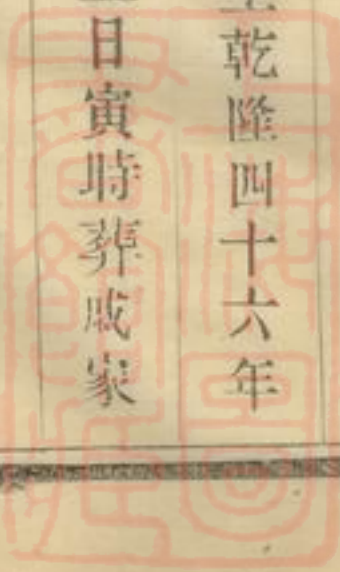 乾隆四十六年
日寅時葬戚家